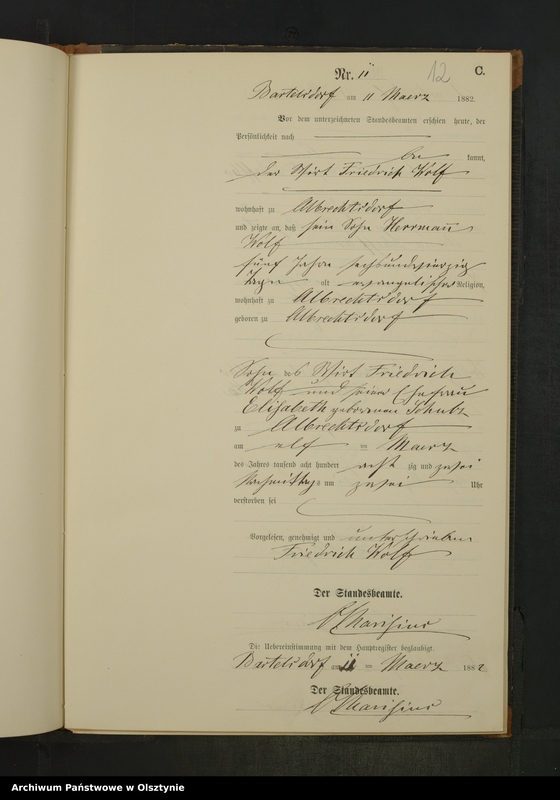 12 C.
Nr. 11
Bartelsdorf am 11 Maerz 1882.
Vor dem unterzeichneten Standesbeamten erschien heute, der
Persönlichkeit nach
be kannt,
der Wirt Friedrich Wolf
wohnhaft zu Albrechtsdorf
und zeigte an, daß sein Sohn Herrmann
Wolf
fünf Jahre sechsundvierzig
Tage alt evangelischer Religion,
wohnhaft zu Albrechtsdorf
geboren zu Albrechtsdorf
Sohn des Wirt Friedrich
Wolf und seiner Ehefrau
Elisabeth geborenen
zu Albrechtsdorf
am elf ten Maerz
des Jahres tausend acht hundert acht zig und zwei
Nachmittags um zwei Uhr
verstorben sei
Vorgelesen, genehmigt und unterschrieben
Friedrich Wolf
Der Standesbeamte.
Die Uebereinstimmung mit dem Hauptregister beglaubigt.
Bartelsdorf am 11 ten Maerz 1882
Der Standesbeamte.
Archiwum Państwowe w Olsztynie